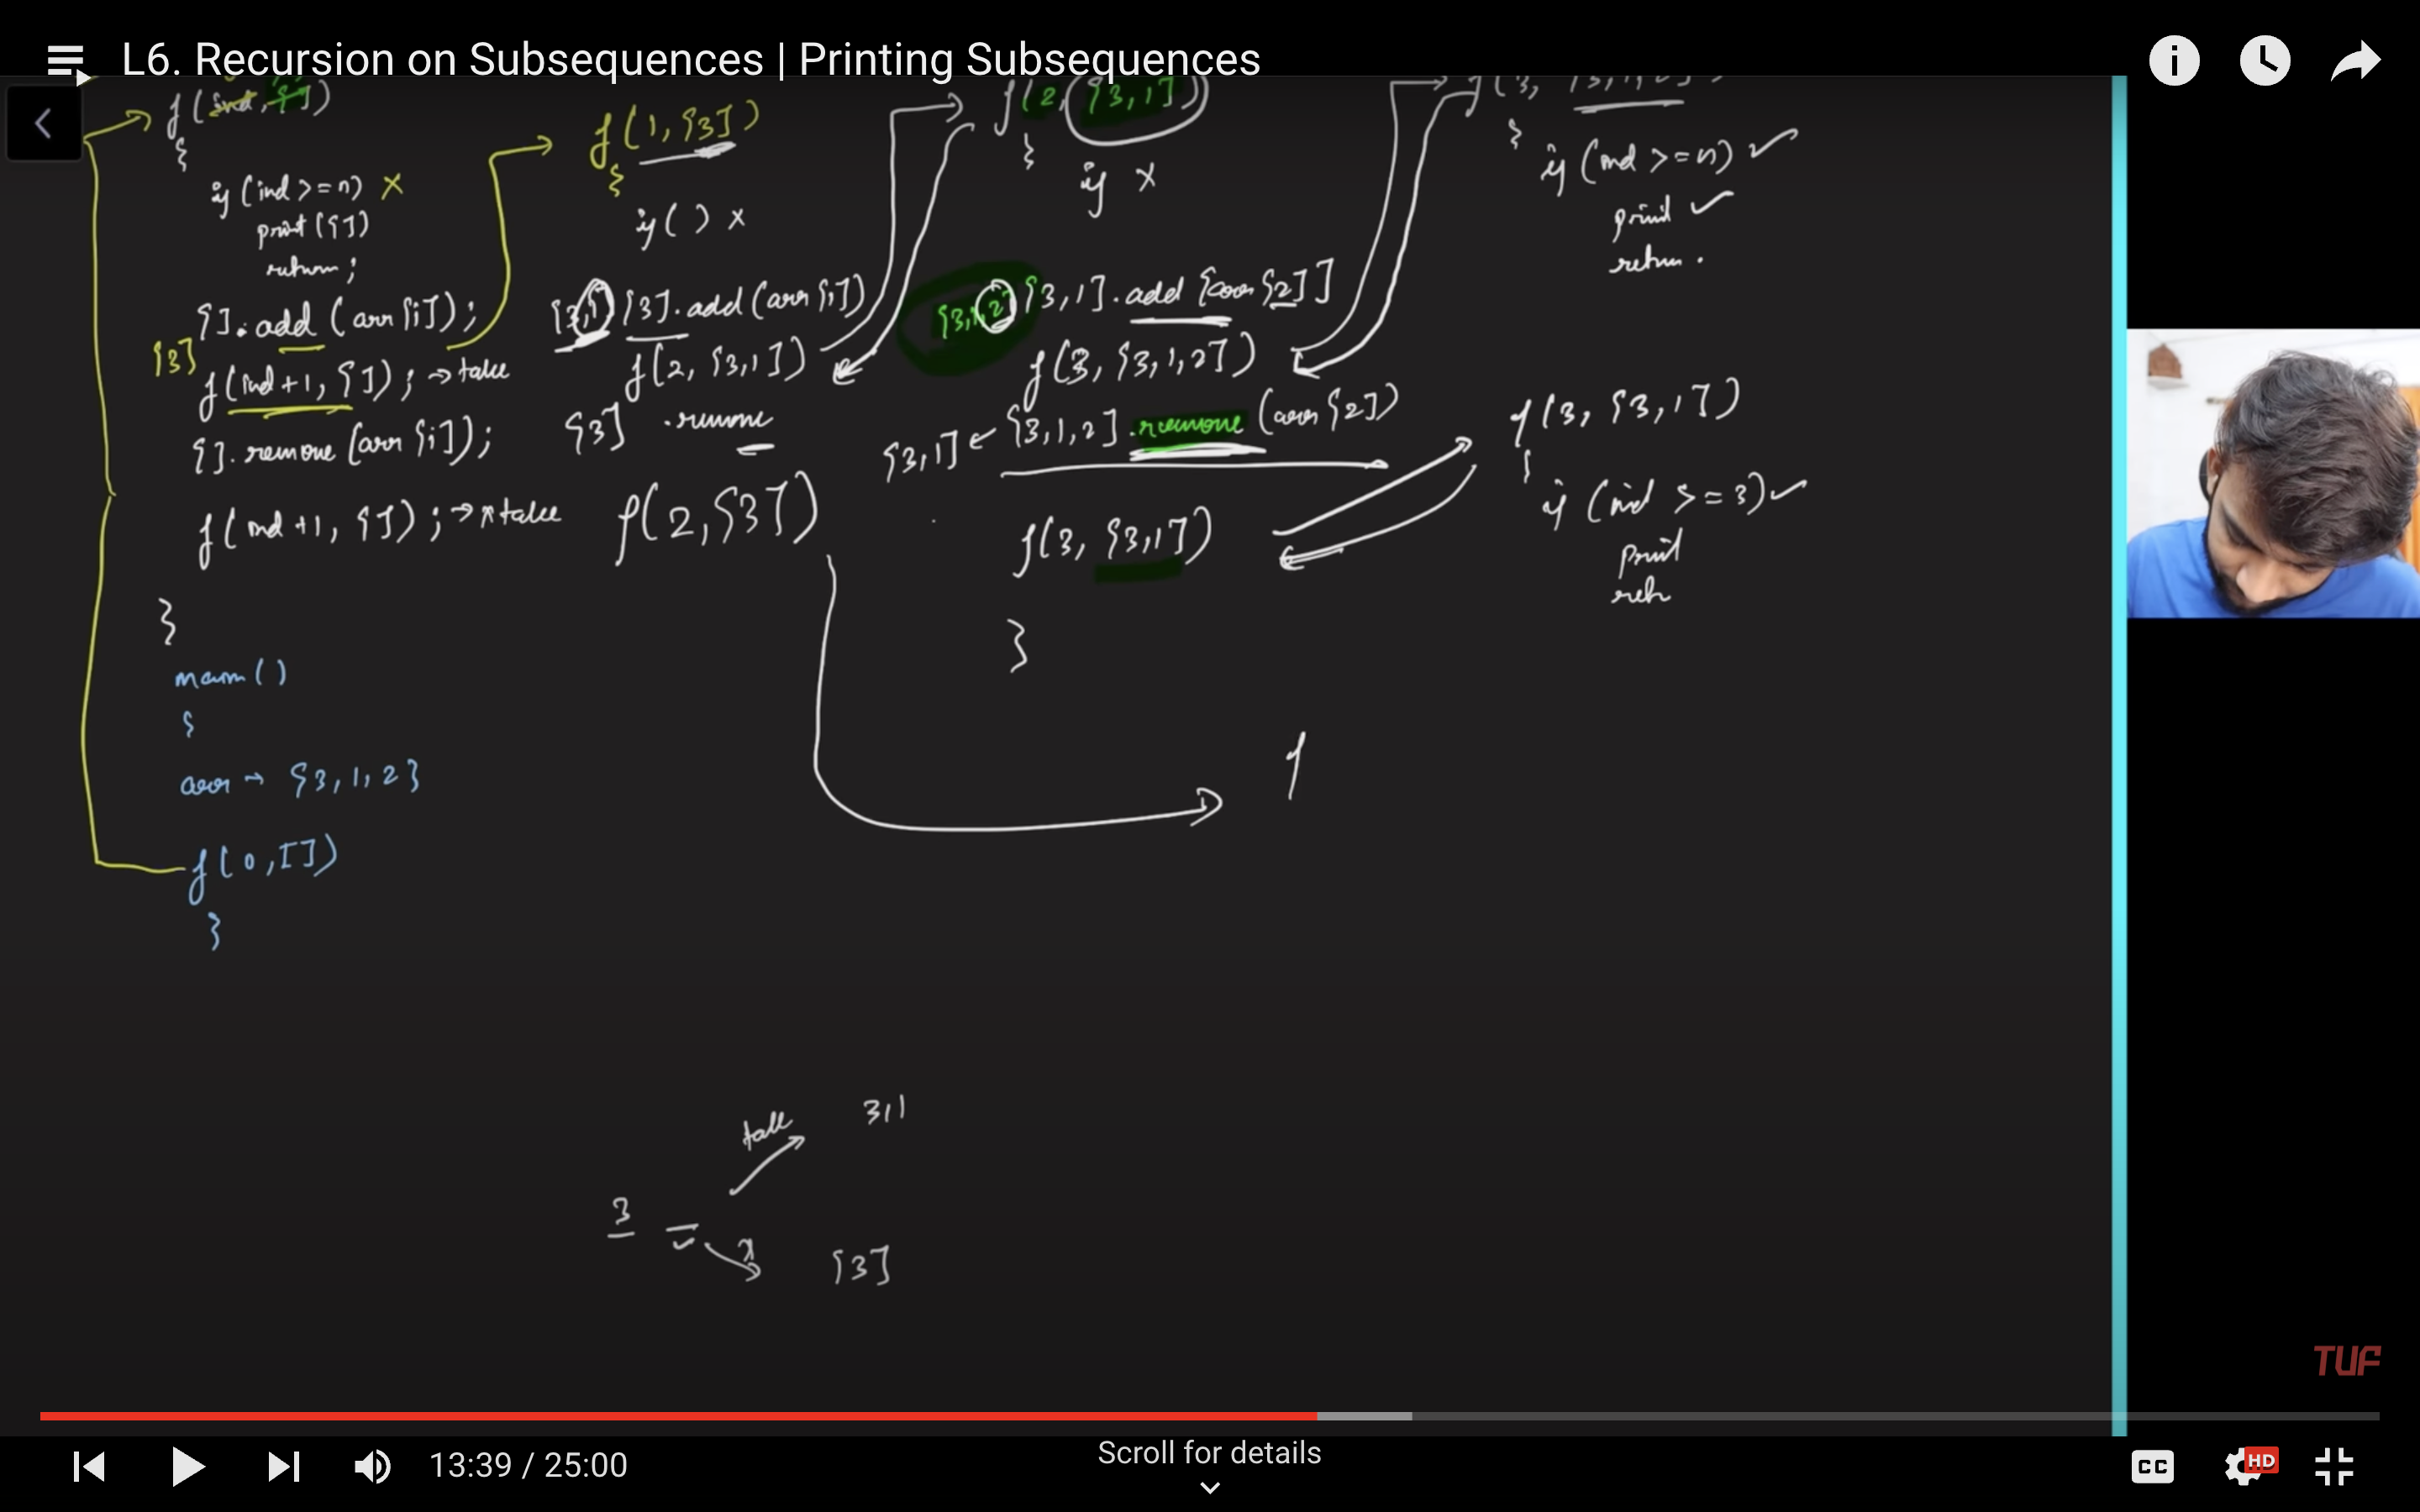 L6. Recursion on Subsequences | Printing Subsequences
f(ind, [])
{
if (ind >= n) x
print([])
return;
[].add(arr[i]);
[3]
f(ind+1, []); → take
[].remove(arr[i]);
f(ind+1, []); → x take
}
main()
{
arr → {3, 1, 2}
f(0, [])
}
f(1, [3])
{
if () x
[3,1] [3].add(arr[i])
f(2, [3,1])
[3] .remove
f(2, [3])
f(2, [3,1])
}
if x
[3,1,2] [3,1].add[arr[2]]
f(3, [3,1,2])
[3,1] ← [3,1,2].remove(arr[2])
f(3, [3,1])
}
f(3,
}
if (ind >= n) ✓
print ✓
return.
f(3, [3,1])
{
if (ind >= 3) ✓
print
ret
f
take 3,1
3
x [3]
TUF
13:39 / 25:00
Scroll for details
CC
HD